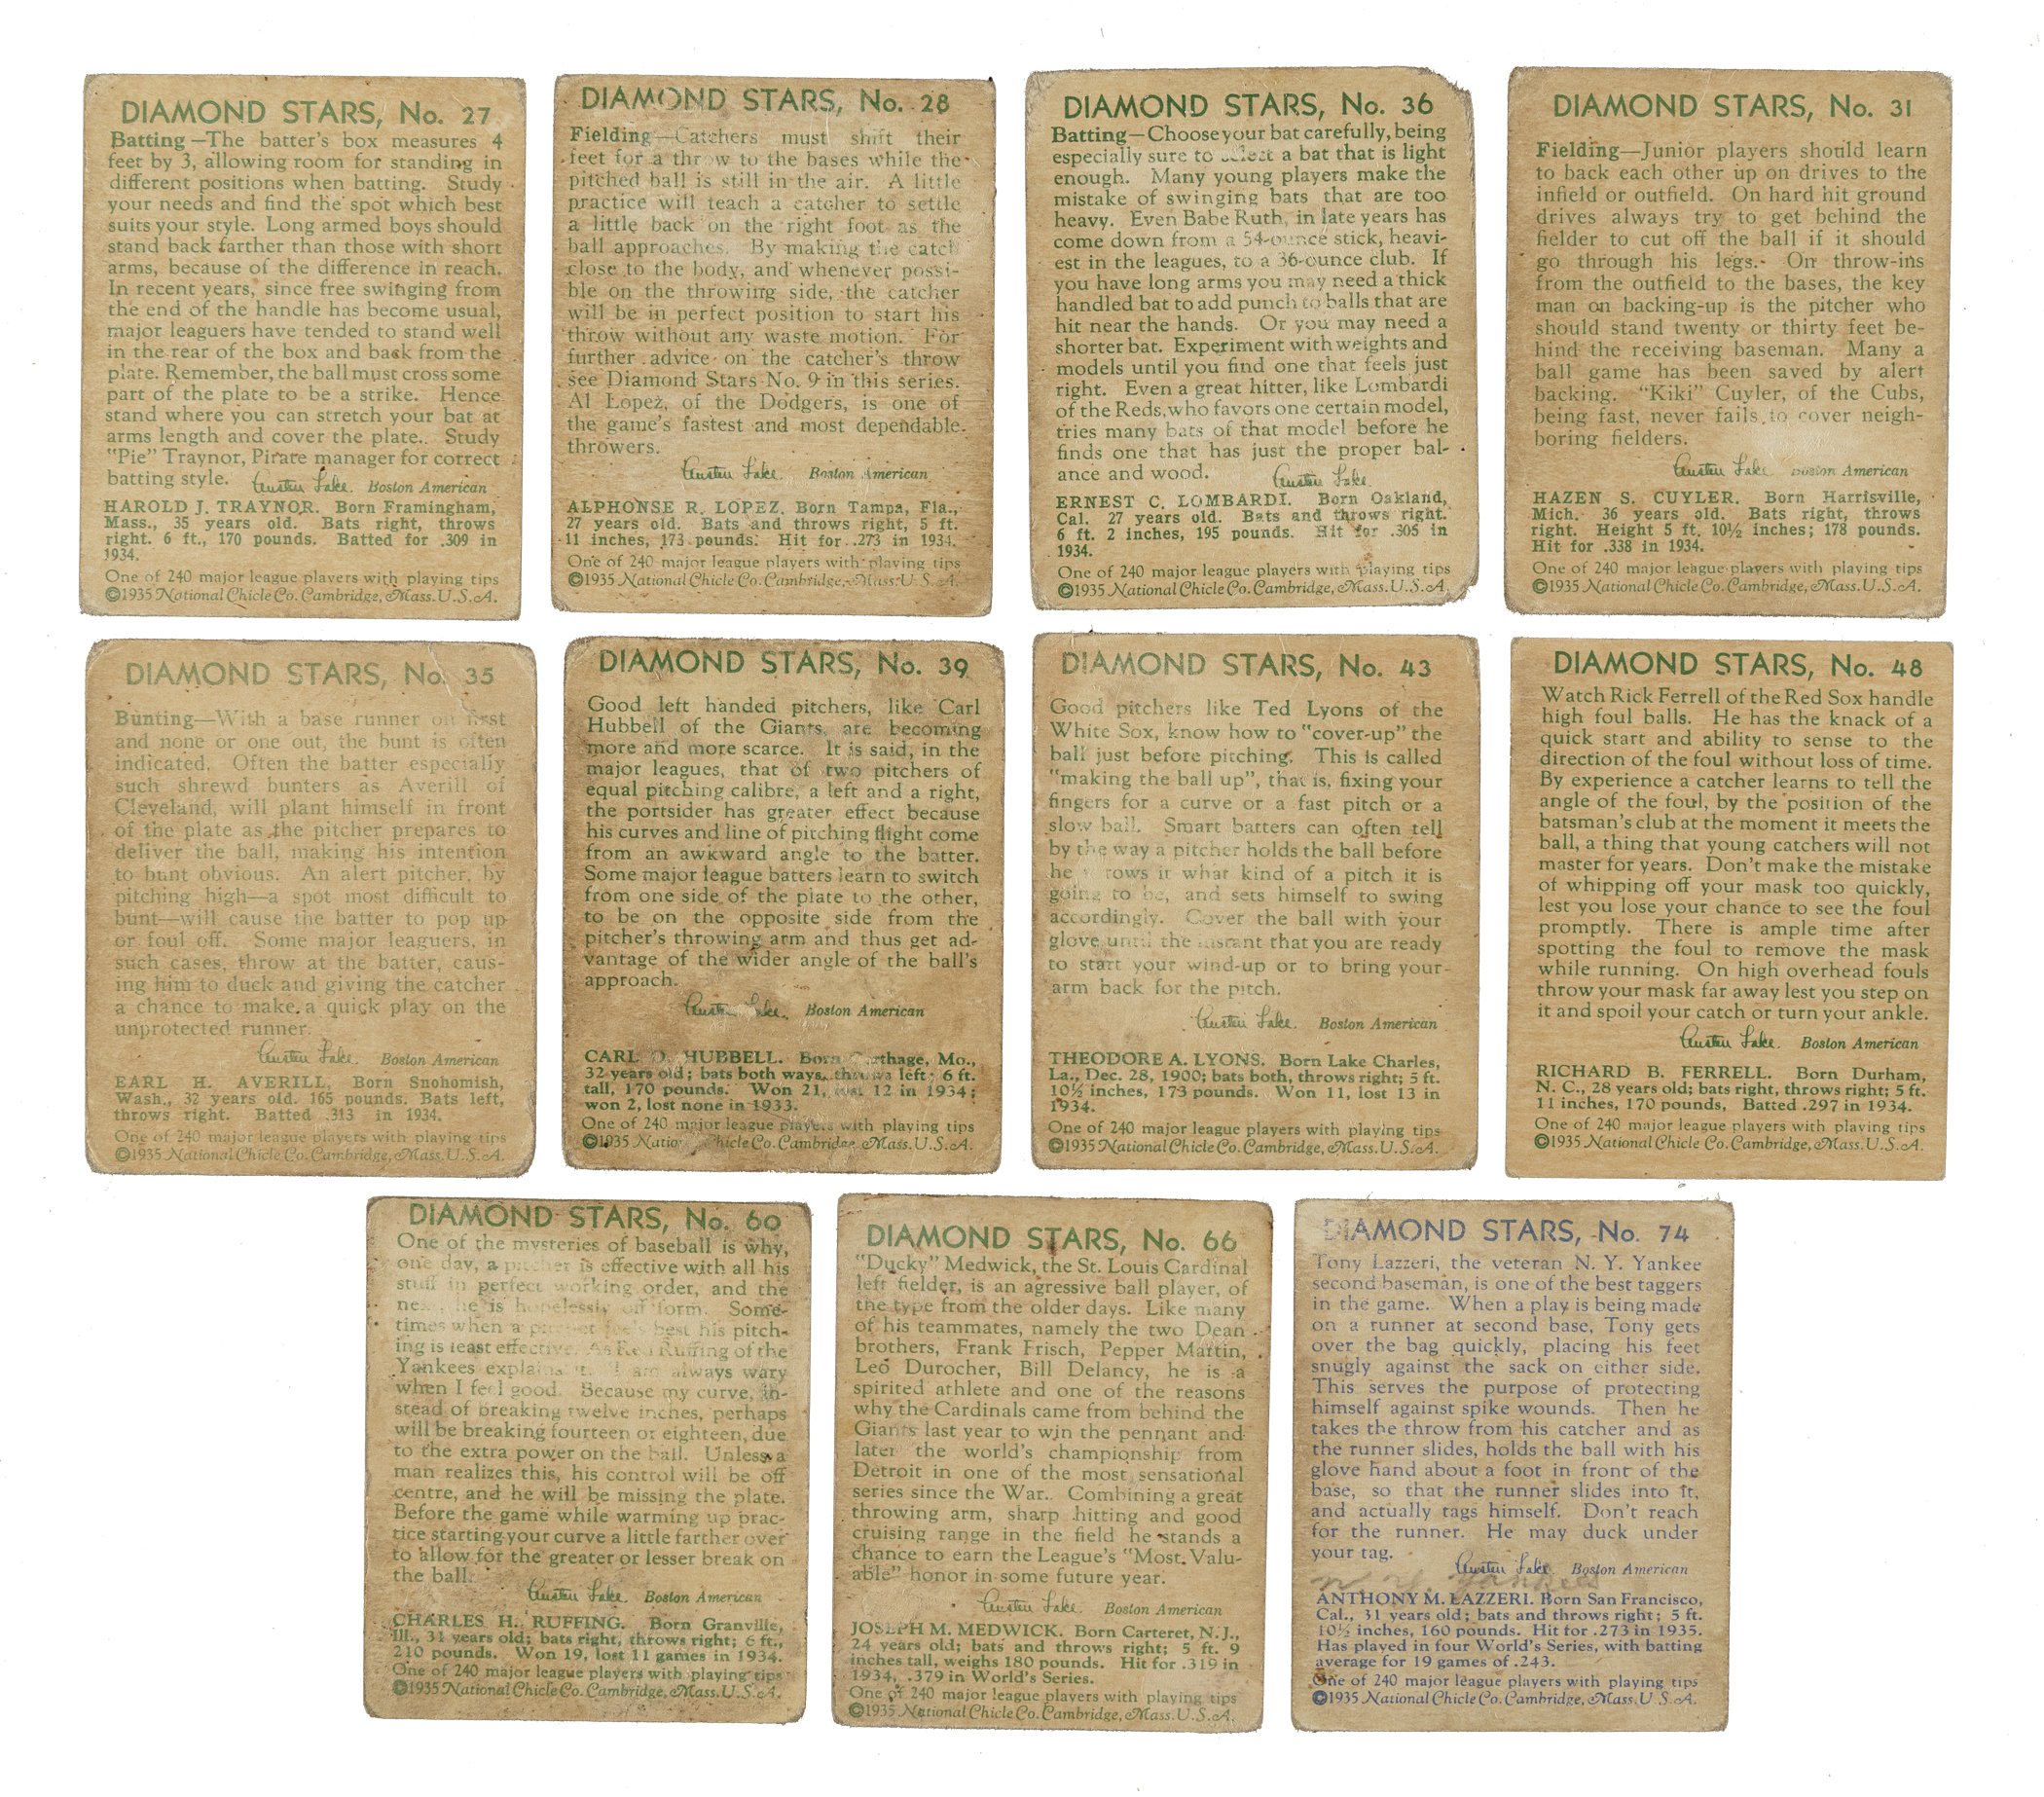 DIAMOND STARS, No. 27
Batting—The batter's box measures 4
feet by 3, allowing room for standing in
different positions when batting. Study
your needs and find the spot which best
suits your style. Long armed boys should
stand back farther than those with short
arms, because of the difference in reach.
In recent years, since free swinging from
the end of the handle has become usual,
major leaguers have tended to stand well
in the rear of the box and back from the
plate. Remember, the ball must cross some
part of the plate to be a strike. Hence
stand where you can stretch your bat at
arms length and cover the plate. Study
"Pie" Traynor, Pirate manager for correct
batting style. Austen Lake. Boston American
HAROLD J. TRAYNOR. Born Framingham,
Mass., 35 years old. Bats right, throws
right. 6 ft., 170 pounds. Batted for .309 in
1934.
One of 240 major league players with playing tips
©1935 National Chicle Co. Cambridge, Mass. U.S.A.
DIAMOND STARS, No. 28
Fielding—Catchers must shift their
feet for a throw to the bases while the
pitched ball is still in the air. A little
practice will teach a catcher to settle
a little back on the right foot as the
ball approaches. By making the catch
close to the body, and whenever possi-
ble on the throwing side, the catcher
will be in perfect position to start his
throw without any waste motion. For
further advice on the catcher's throw
see Diamond Stars No. 9 in this series.
Al Lopez, of the Dodgers, is one of
the game's fastest and most dependable
throwers.
Austen Lake. Boston American
ALPHONSE R. LOPEZ. Born Tampa, Fla.,
27 years old. Bats and throws right, 5 ft.
11 inches, 173 pounds. Hit for .273 in 1934.
One of 240 major league players with playing tips
©1935 National Chicle Co. Cambridge, Mass. U.S.A.
DIAMOND STARS, No. 36
Batting—Choose your bat carefully, being
especially sure to select a bat that is light
enough. Many young players make the
mistake of swinging bats that are too
heavy. Even Babe Ruth, in late years has
come down from a 54-ounce stick, heavi-
est in the leagues, to a 36-ounce club. If
you have long arms you may need a thick
handled bat to add punch to balls that are
hit near the hands. Or you may need a
shorter bat. Experiment with weights and
models until you find one that feels just
right. Even a great hitter, like Lombardi
of the Reds, who favors one certain model,
tries many bats of that model before he
finds one that has just the proper bal-
ance and wood. Austen Lake.
ERNEST C. LOMBARDI. Born Oakland,
Cal. 27 years old. Bats and throws right.
6 ft. 2 inches, 195 pounds. Hit for .305 in
1934.
One of 240 major league players with playing tips
©1935 National Chicle Co. Cambridge, Mass. U.S.A.
DIAMOND STARS, No. 31
Fielding—Junior players should learn
to back each other up on drives to the
infield or outfield. On hard hit ground
drives always try to get behind the
fielder to cut off the ball if it should
go through his legs. On throw-ins
from the outfield to the bases, the key
man on backing-up is the pitcher who
should stand twenty or thirty feet be-
hind the receiving baseman. Many a
ball game has been saved by alert
backing. "Kiki" Cuyler, of the Cubs,
being fast, never fails to cover neigh-
boring fielders.
Austen Lake Boston American
HAZEN S. CUYLER. Born Harrisville,
Mich. 36 years old. Bats right, throws
right. Height 5 ft. 10½ inches; 178 pounds.
Hit for .338 in 1934.
One of 240 major league players with playing tips
©1935 National Chicle Co. Cambridge, Mass. U.S.A.
DIAMOND STARS, No. 35
Bunting—With a base runner on first
and none or one out, the bunt is often
indicated. Often the batter especially
such shrewd bunters as Averill of
Cleveland, will plant himself in front
of the plate as the pitcher prepares to
deliver the ball, making his intention
to bunt obvious. An alert pitcher, by
pitching high—a spot most difficult to
bunt—will cause the batter to pop up
or foul off. Some major leaguers, in
such cases, throw at the batter, caus-
ing him to duck and giving the catcher
a chance to make a quick play on the
unprotected runner.
Austen Lake. Boston American
EARL H. AVERILL, Born Snohomish,
Wash., 32 years old. 165 pounds. Bats left,
throws right. Batted .313 in 1934.
One of 240 major league players with playing tips
©1935 National Chicle Co. Cambridge, Mass. U.S.A.
DIAMOND STARS, No. 39
Good left handed pitchers, like Carl
Hubbell of the Giants, are becoming
more and more scarce. It is said, in the
major leagues, that of two pitchers of
equal pitching calibre, a left and a right,
the portsider has greater effect because
his curves and line of pitching flight come
from an awkward angle to the batter.
Some major league batters learn to switch
from one side of the plate to the other,
to be on the opposite side from the
pitcher's throwing arm and thus get ad-
vantage of the wider angle of the ball's
approach.
Austen Lake. Boston American
CARL O. HUBBELL. Born Carthage, Mo.,
32 years old; bats both ways, throws left; 6 ft.
tall, 170 pounds. Won 21, lost 12 in 1934;
won 2, lost none in 1933.
One of 240 major league players with playing tips
©1935 National Chicle Co. Cambridge, Mass. U.S.A.
DIAMOND STARS, No. 43
Good pitchers like Ted Lyons of the
White Sox, know how to "cover-up" the
ball just before pitching. This is called
"making the ball up", that is, fixing your
fingers for a curve or a fast pitch or a
slow ball. Smart batters can often tell
by the way a pitcher holds the ball before
he throws it what kind of a pitch it is
going to be, and sets himself to swing
accordingly. Cover the ball with your
glove until the instant that you are ready
to start your wind-up or to bring your
arm back for the pitch.
Austen Lake. Boston American
THEODORE A. LYONS. Born Lake Charles,
La., Dec. 28, 1900; bats both, throws right; 5 ft.
10½ inches, 173 pounds. Won 11, lost 13 in
1934.
One of 240 major league players with playing tips
©1935 National Chicle Co. Cambridge, Mass. U.S.A.
DIAMOND STARS, No. 48
Watch Rick Ferrell of the Red Sox handle
high foul balls. He has the knack of a
quick start and ability to sense to the
direction of the foul without loss of time.
By experience a catcher learns to tell the
angle of the foul, by the position of the
batsman's club at the moment it meets the
ball, a thing that young catchers will not
master for years. Don't make the mistake
of whipping off your mask too quickly,
lest you lose your chance to see the foul
promptly. There is ample time after
spotting the foul to remove the mask
while running. On high overhead fouls
throw your mask far away lest you step on
it and spoil your catch or turn your ankle.
Austen Lake. Boston American
RICHARD B. FERRELL. Born Durham,
N. C., 28 years old; bats right, throws right; 5 ft.
11 inches, 170 pounds, Batted .297 in 1934.
One of 240 major league players with playing tips
©1935 National Chicle Co. Cambridge, Mass. U.S.A.
DIAMOND STARS, No. 60
One of the mysteries of baseball is why,
one day, a pitcher is effective with all his
stuff in perfect working order, and the
next, he is hopelessly off form. Some-
times when a pitcher feels best his pitch-
ing is least effective. As Red Ruffing of the
Yankees explains it. "I am always wary
when I feel good. Because my curve, in-
stead of breaking twelve inches, perhaps
will be breaking fourteen or eighteen, due
to the extra power on the ball. Unless a
man realizes this, his control will be off
centre, and he will be missing the plate.
Before the game while warming up prac-
tice starting your curve a little farther over
to allow for the greater or lesser break on
the ball.
Austen Lake. Boston American
CHARLES H. RUFFING. Born Granville,
Ill., 31 years old; bats right, throws right; 6 ft.,
210 pounds. Won 19, lost 11 games in 1934.
One of 240 major league players with playing tips
©1935 National Chicle Co. Cambridge, Mass. U.S.A.
DIAMOND STARS, No. 66
"Ducky" Medwick, the St. Louis Cardinal
left fielder, is an agressive ball player, of
the type from the older days. Like many
of his teammates, namely the two Dean
brothers, Frank Frisch, Pepper Martin,
Leo Durocher, Bill Delancy, he is a
spirited athlete and one of the reasons
why the Cardinals came from behind the
Giants last year to win the pennant and
later the world's championship from
Detroit in one of the most sensational
series since the War. Combining a great
throwing arm, sharp hitting and good
cruising range in the field he stands a
chance to earn the League's "Most Valu-
able" honor in some future year.
Austen Lake. Boston American
JOSEPH M. MEDWICK. Born Carteret, N.J.,
24 years old; bats and throws right; 5 ft. 9
inches tall, weighs 180 pounds. Hit for .319 in
1934, .379 in World's Series.
One of 240 major league players with playing tips
©1935 National Chicle Co. Cambridge, Mass. U.S.A.
DIAMOND STARS, No. 74
Tony Lazzeri, the veteran N. Y. Yankee
second baseman, is one of the best taggers
in the game. When a play is being made
on a runner at second base, Tony gets
over the bag quickly, placing his feet
snugly against the sack on either side.
This serves the purpose of protecting
himself against spike wounds. Then he
takes the throw from his catcher and as
the runner slides, holds the ball with his
glove hand about a foot in front of the
base, so that the runner slides into it,
and actually tags himself. Don't reach
for the runner. He may duck under
your tag.
Austen Lake. Boston American
N. Y. Yankees
ANTHONY M. LAZZERI. Born San Francisco,
Cal., 31 years old; bats and throws right; 5 ft.
10½ inches, 160 pounds. Hit for .273 in 1935.
Has played in four World's Series, with batting
average for 19 games of .243.
One of 240 major league players with playing tips
©1935 National Chicle Co. Cambridge, Mass. U.S.A.